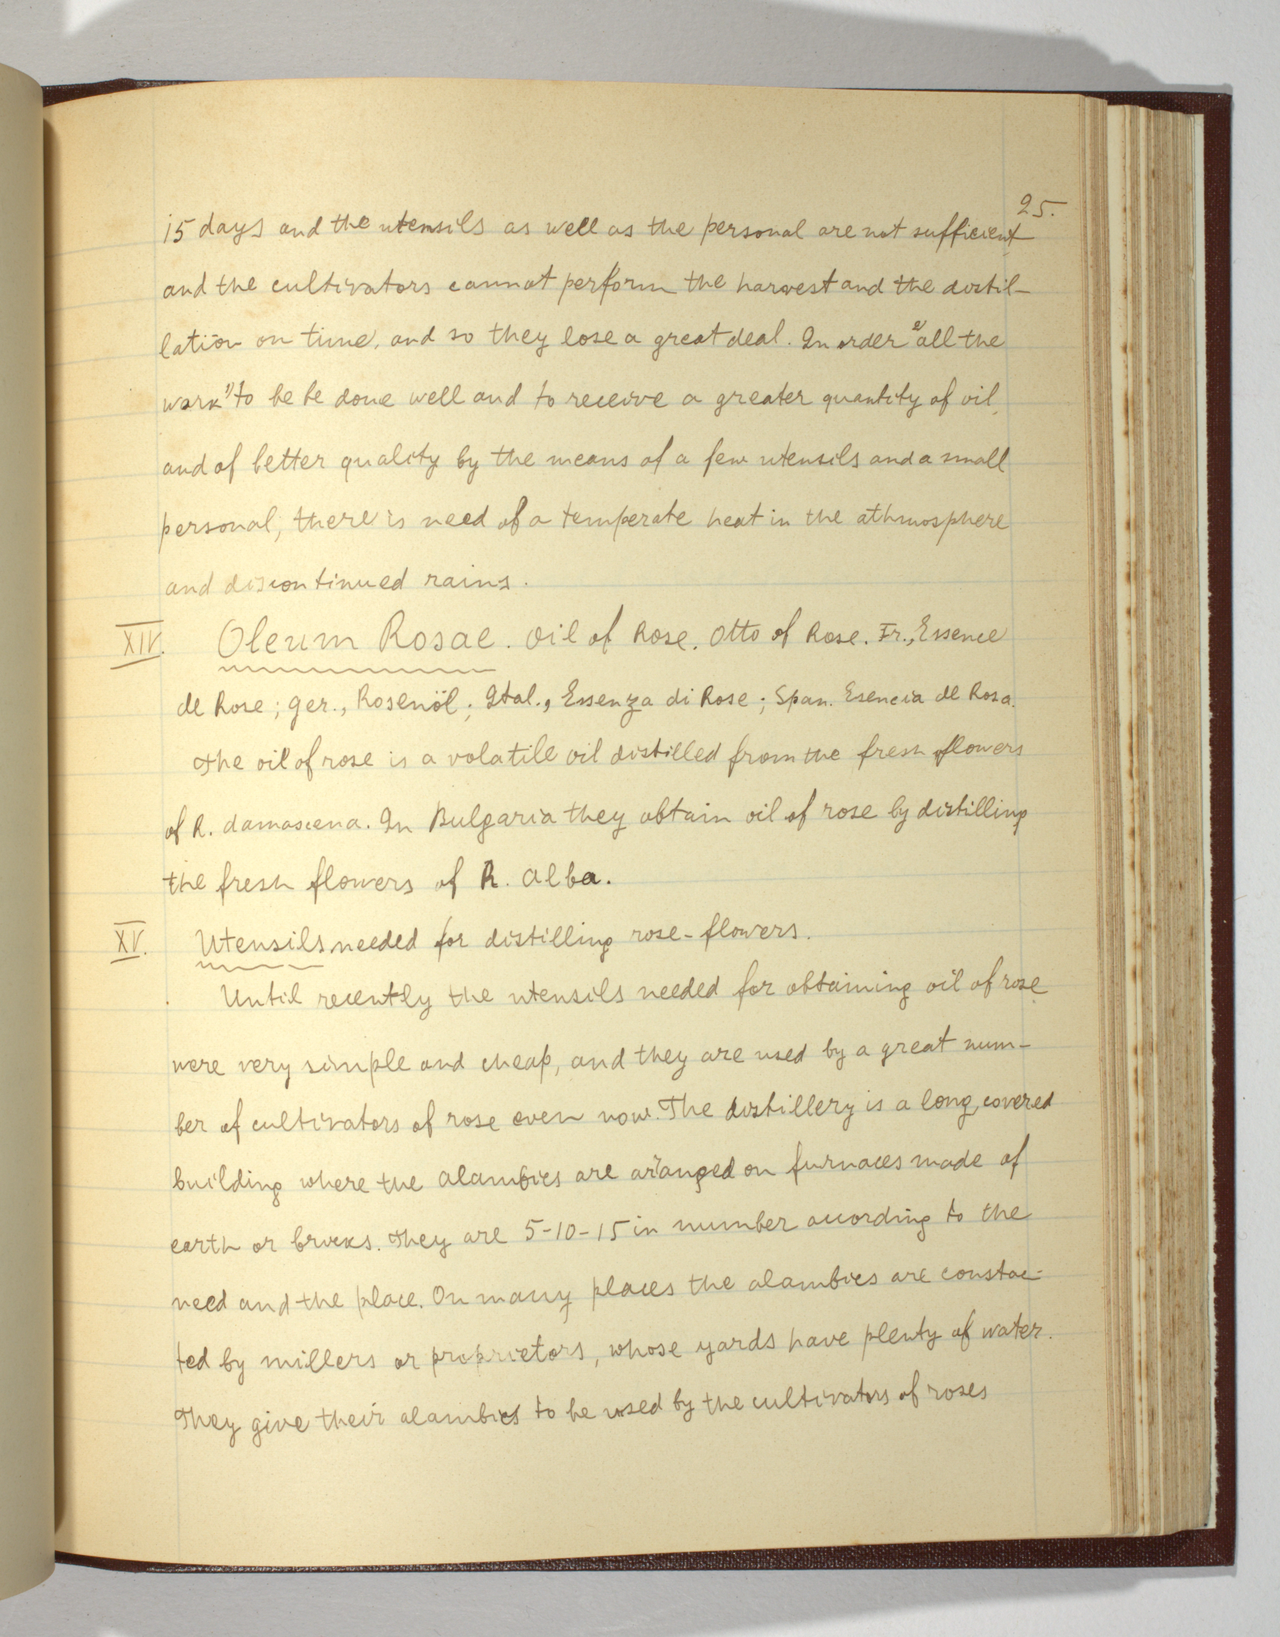 25.
15 days and the utensils as well as the personal are not sufficient
and the cultivators cannot perform the harvest and the distil-
lation on time, and so they lose a great deal. In order "all the
work" to be be done well and to receive a greater quantity of oil,
and of better quality by the means of a few utensils and a small
personal, there is need of a temperate heat in the athmosphere
and discontinued rains.
XIV. Oleum Rosae. Oil of Rose. Otto of Rose. Fr., Essence
de Rose; Ger., Rosenöl; Ital., Essenza di Rose; Span. Esencia de Rosa.
The oil of rose is a volatile oil distilled from the fresh flowers
of R. damascena. In Bulgaria they obtain oil of rose by distilling
the fresh flowers of R. Alba.
XV. Utensils needed for distilling rose-flowers.
Until recently the utensils needed for obtaining oil of rose
were very simple and cheap, and they are used by a great num-
ber of cultivators of rose even now. The distillery is a long, covered
building where the alambics are aranged on furnaces made of
earth or bricks. They are 5-10-15 in number acording to the
need and the place. On many places the alambics are constac-
ted by millers or proprietors, whose yards have plenty of water.
They give their alambics to be used by the cultivators of roses